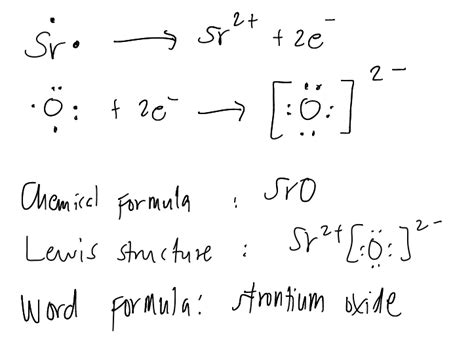 Sr → Sr²⁺ + 2e⁻
·Ö: + 2e⁻ → [:Ö:]²⁻
Chemical formula : SrO
Lewis structure : Sr²⁺[:Ö:]²⁻
Word formula: strontium oxide